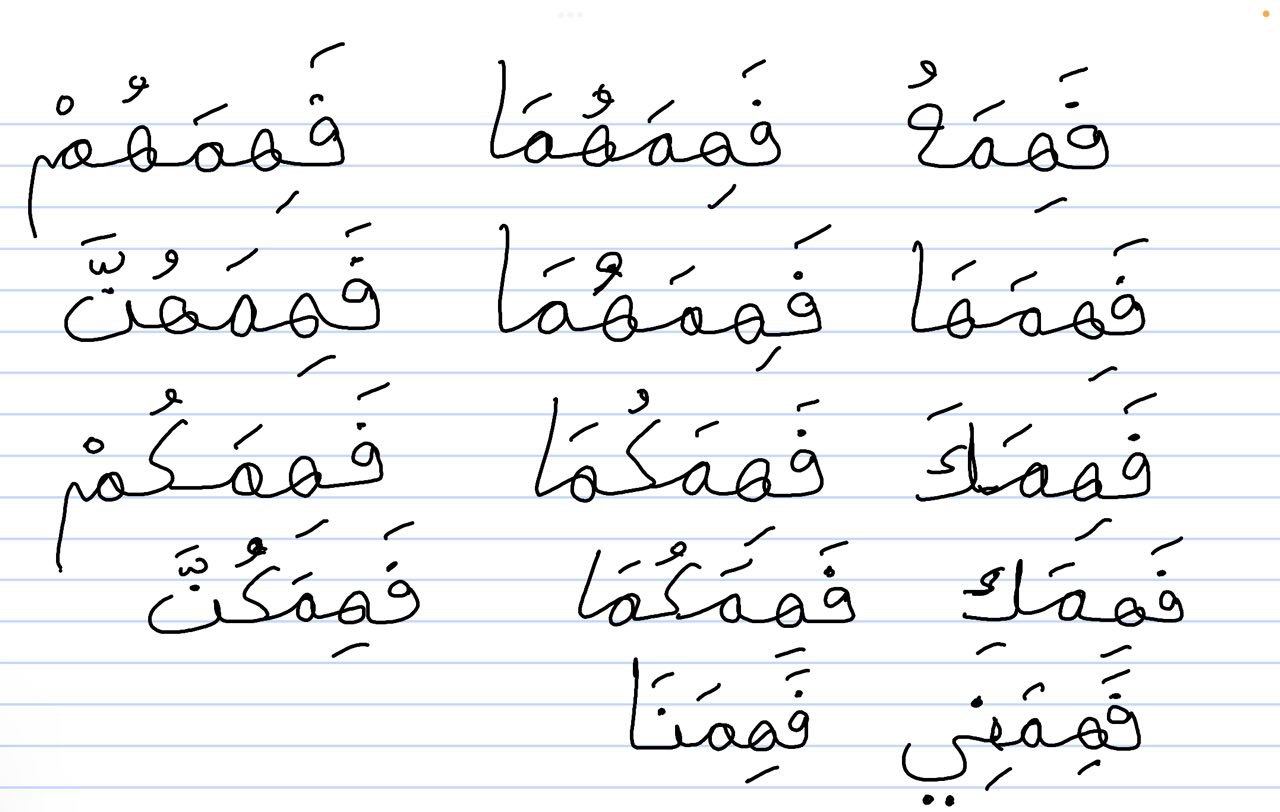 فَهِمَهُ فَهِمَهُمَا فَهِمَهُمْ
فَهِمَهَا فَهِمَهُمَا فَهِمَهُنَّ
فَهِمَكَ فَهِمَكُمَا فَهِمَكُمْ
فَهِمَكِ فَهِمَكُمَا فَهِمَكُنَّ
فَهِمَنِي فَهِمَنَا